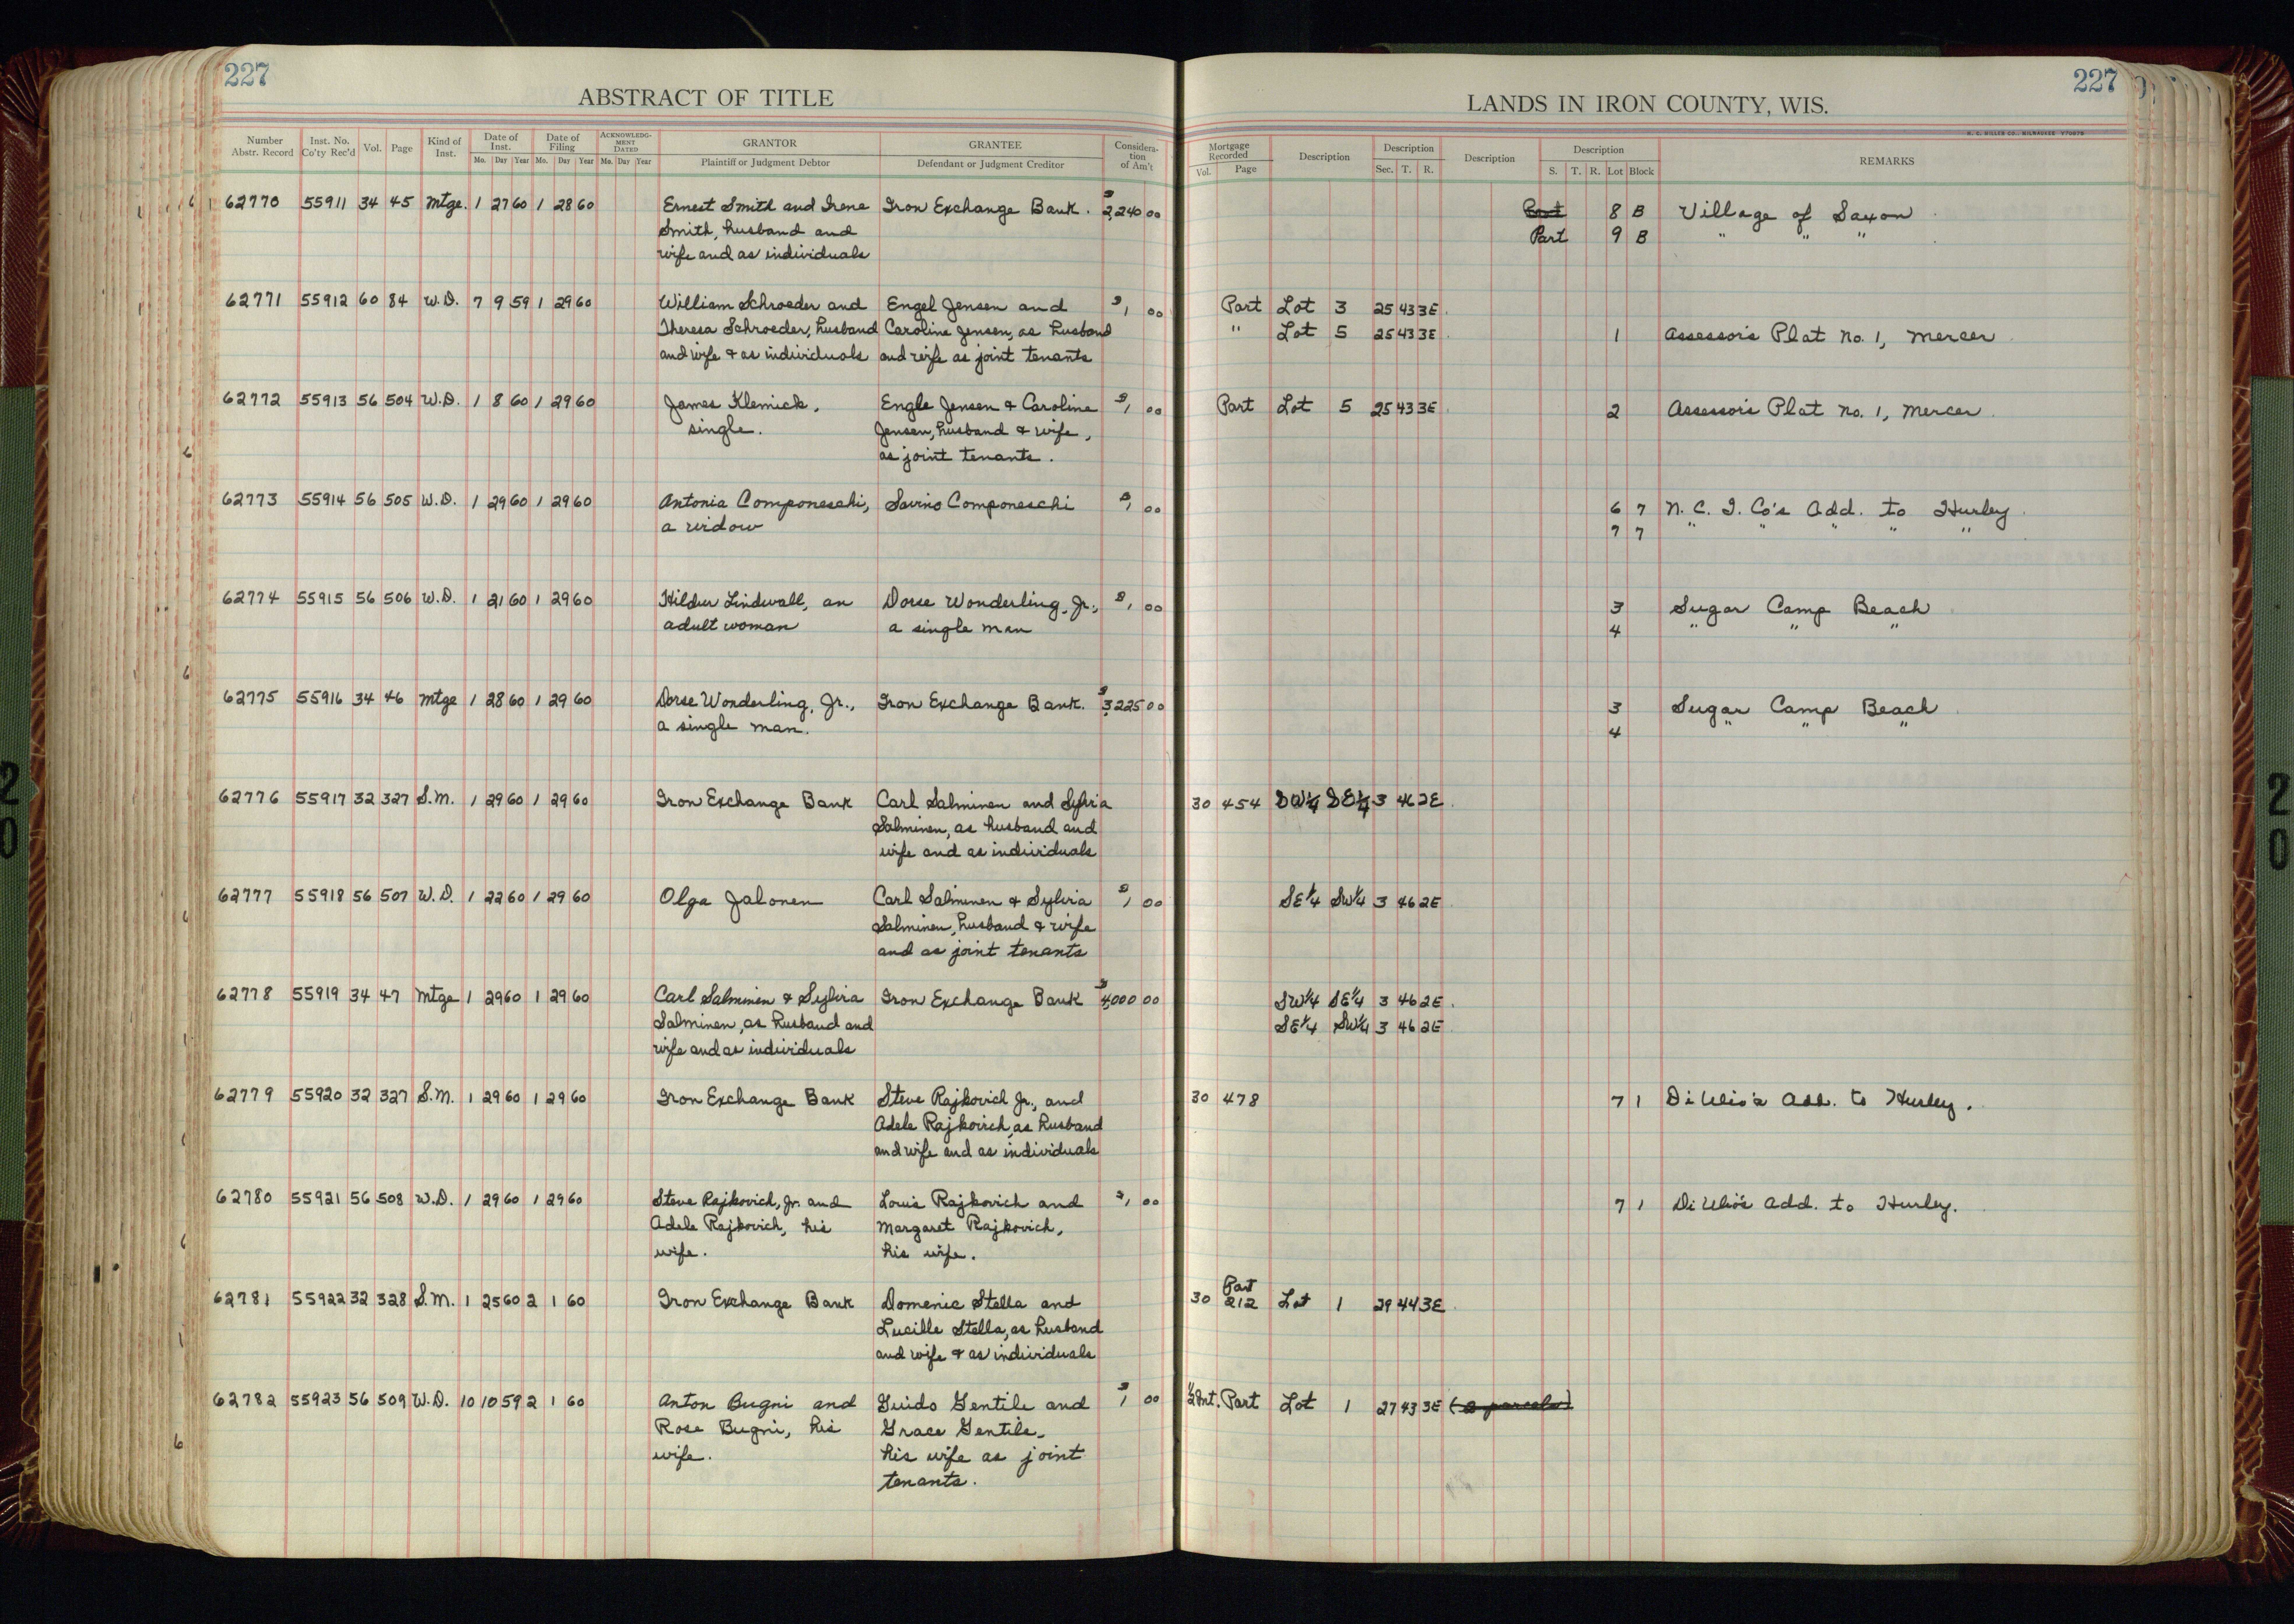 227
ABSTRACT OF TITLE
Number Abstr. Record Inst. No. Co'ty Rec'd Vol. Page Kind of Inst. Date of Inst. Mo. Day Year Date of Filing Mo. Day Year ACKNOWLEDGMENT DATED Mo. Day Year GRANTOR Plaintiff or Judgment Debtor GRANTEE Defendant or Judgment Creditor Consideration of Am't
227
LANDS IN IRON COUNTY, WIS.
H. C. MILLER CO., MILWAUKEE
Mortgage Recorded Vol. Page Description Description Sec. T. R. Description Description S. T. R. Lot Block REMARKS
62770 55911 34 45 Mtge. 1 27 60 1 28 60 Ernest Smith and Irene Iron Exchange Bank. $2,240 00 Part 8 B Village of Saxon
Smith, husband and Part 9 B " " "
wife and as individuals
62771 55912 60 84 W.D. 7 9 59 1 29 60 William Schroeder and Engel Jensen and $1 00 Part Lot 3 25 43 3E
Theresa Schroeder, husband Caroline Jensen, as husband " Lot 5 25 43 3E 1 Assessor's Plat No. 1, Mercer
and wife & as individuals and wife as joint tenants
62772 55913 56 504 W.D. 1 8 60 1 29 60 James Klemick, Engle Jensen & Caroline $1 00 Part Lot 5 25 43 3E 2 Assessor's Plat No. 1, Mercer
single. Jensen, husband & wife,
as joint tenants.
62773 55914 56 505 W.D. 1 29 60 1 29 60 Antonia Componeschi, Savino Componeschi $1 00 6 7 N. C. I. Co's Add. to Hurley
a widow 7 7 " " " " "
62774 55915 56 506 W.D. 1 21 60 1 29 60 Hildur Lindwall, an Dorse Wonderling, Jr., $1 00 3 Sugar Camp Beach
adult woman a single man 4 " " "
62775 55916 34 46 Mtge 1 28 60 1 29 60 Dorse Wonderling, Jr., Iron Exchange Bank. $3,225 00 3 Sugar Camp Beach
a single man. 4 " " "
62776 55917 32 327 S.M. 1 29 60 1 29 60 Iron Exchange Bank Carl Salminen and Sylvia 30 454 SW¼ SE¼ 3 46 2E
Salminen, as husband and
wife and as individuals
62777 55918 56 507 W.D. 1 22 60 1 29 60 Olga Jalonen Carl Salminen & Sylvia $1 00 SE¼ SW¼ 3 46 2E
Salminen, husband & wife
and as joint tenants
62778 55919 34 47 Mtge 1 29 60 1 29 60 Carl Salminen & Sylvia Iron Exchange Bank $4,000 00 SW¼ SE¼ 3 46 2E
Salminen, as husband and SE¼ SW¼ 3 46 2E
wife and as individuals
62779 55920 32 327 S.M. 1 29 60 1 29 60 Iron Exchange Bank Steve Rajkovich Jr., and 30 478 7 1 DiUlio's Add. to Hurley.
Adele Rajkovich, as husband
and wife and as individuals
62780 55921 56 508 W.D. 1 29 60 1 29 60 Steve Rajkovich, Jr. and Louis Rajkovich and $1 00 7 1 DiUlio's Add. to Hurley.
Adele Rajkovich, his Margaret Rajkovich,
wife. his wife.
62781 55922 32 328 S.M. 1 25 60 2 1 60 Iron Exchange Bank Domenic Stella and 30 Part 212 Lot 1 29 44 3E
Lucille Stella, as husband
and wife & as individuals
62782 55923 56 509 W.D. 10 10 59 2 1 60 Anton Bugni and Guido Gentile and $1 00 ½ Int. Part Lot 1 27 43 3E (2 parcels)
Rose Bugni, his Grace Gentile,
wife. his wife as joint
tenants.
20
20